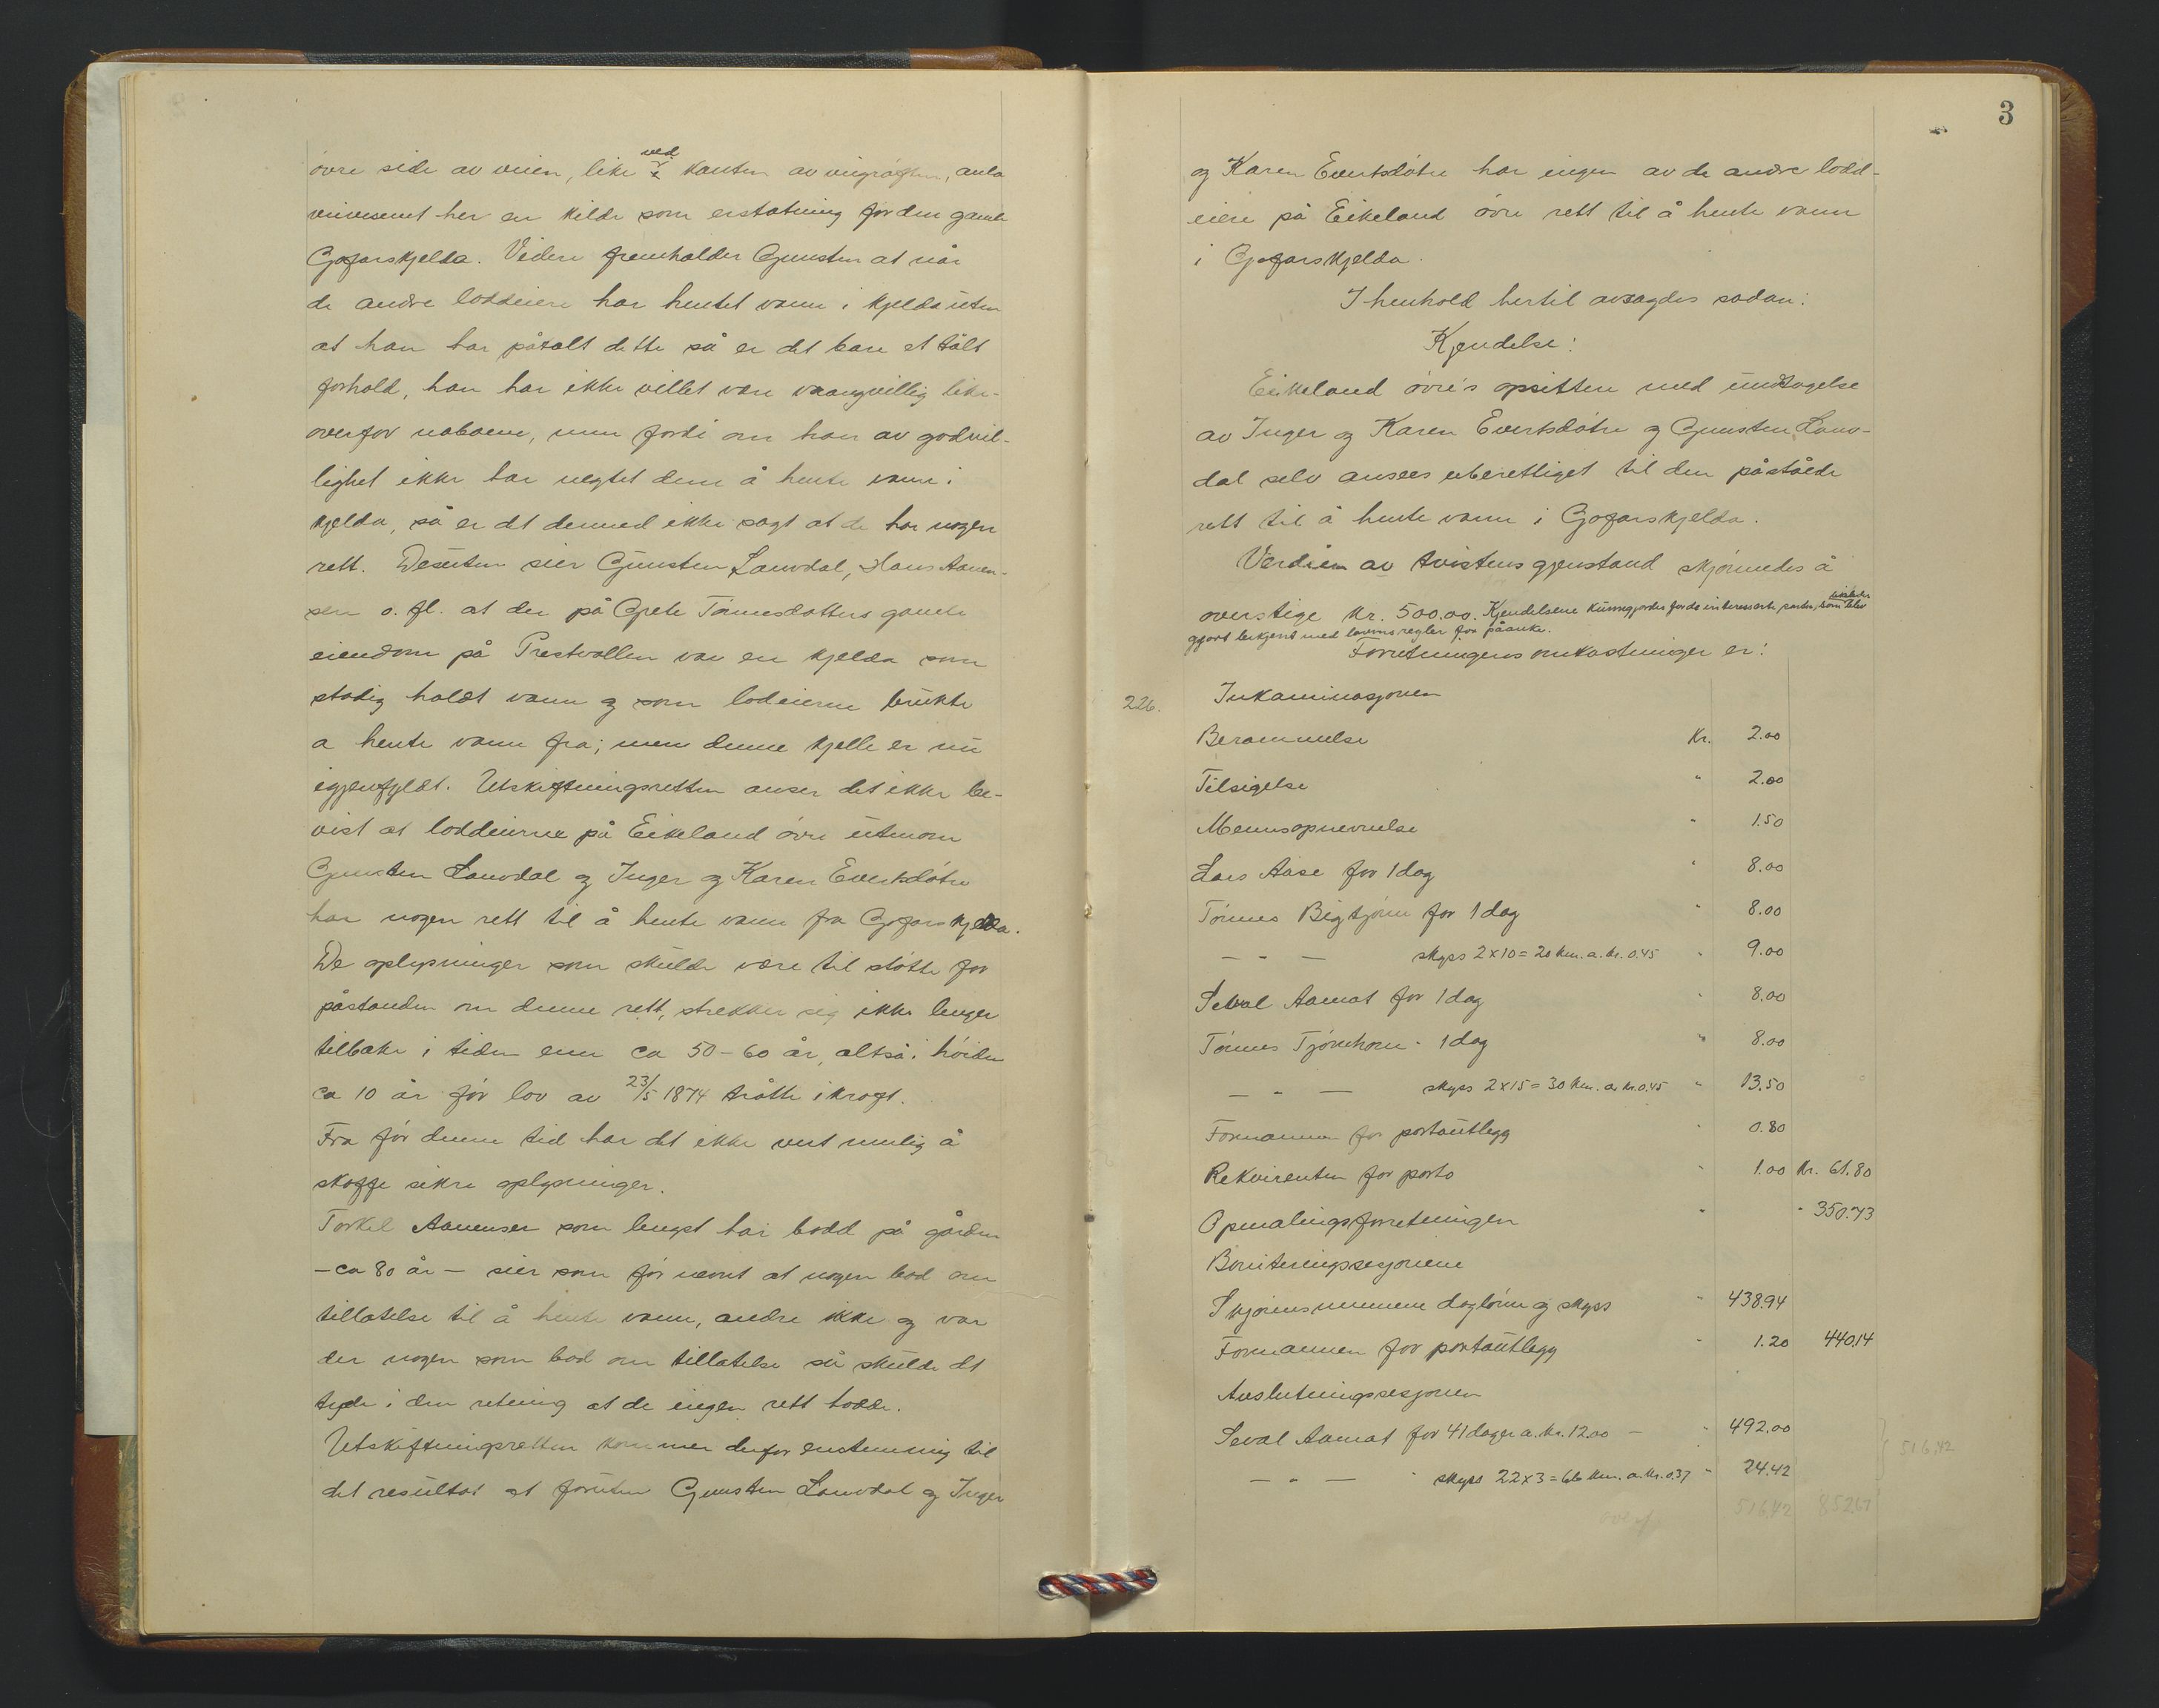 øvre side av veien, like ved kanten av veigrøften, anla
veivesenet her en kilde som erstatning for den gamle
Gofarskjelda. Videre fremholder Gunsten at når
de andre loddeiere har hentet vann i kjelda uten
at han har påtalt dette så er det bare et tålt
forhold, han har ikke villet være vrangvillig like-
overfor naboene, men fordi om han av godvil-
lighet ikke har negtet dem å hente vann i
kjelda, så er dt dermed ikke sagt at de har nogen
rett. Desuten sier Gunsten Lauvdal, Hans Aanen-
sen o. fl. at der på Grete Tønnesdatters gamle
eiendom på Prestvollen var en kjelda som
stadig holdt vann og som lodeierne brukte
a hente vann fra; men denne kjelle er nu
igjenfyldt. Utskiftningsretten anser det ikke be-
vist at loddeierne på Eikeland øvre utenom
Gunsten Lauvdal og Inger og Karen Evertsdøtre
har nogen rett til å hente vann fra Gofarskjelda.
De oplysninger som skulde være til støtte for
påstanden om denne rett, strekker sig ikke lenger
tilbake i tiden enn ca 50-60 år, altså i høiden
ca 10 år før lov av 23/5 1874 trådte i kraft.
Fra før denne tid har det ikke vert mulig å
skaffe sikre oplysninger.
Torkel Aanensen som lengst har bodd på gården
- ca 80 år - sier som før nevnt at nogen bad om
tillatelse til å hente vann, andre ikke og var
der nogen som bad om tillatelse så skulde dt
tyde i den retning at de ingen rett hadde.
Utskiftningsretten kommer derfor enstemmig til
det resultat at foruten Gunsten Lauvdal og Inger
3
og Karen Evertsdøtre har ingen av de andre lodd-
eiere på Eikeland øvre rett til å hente vann
i Gofarskjelda.
I henhold hertil avsagdes sådan:
Kjendelse:
Eikeland øvre's opsittere med undtagelse
av Inger og Karen Evertsdøtre og Gunsten Lauv-
dal selv ansees uberettiget til den påståede
rett til å hente vann i Gofarskjelda.
Verdien av tvistens gjenstand skjønnedes å
overstige kr. 500.00. Kjendelsene kunngjordes for de interesserte parter, som blev
gjort bekjent med lovens regler for påanke.
Forretningens omkostninger er:
226. Inkaminasjonen
Berammelse Kr. 2.00
Tilsigelse " 2.00
Mennsopnevnelse " 1.50
Lars Aase for 1 dag " 8.00
Tønnes Bigtjønn for 1 dag " 8.00
— " — skyss 2x10=20 km. a. kr. 0.45 " 9.00
Seval Aamot for 1 dag " 8.00
Tønnes Tjørnhom " 1 dag " 8.00
— " — skyss 2x15=30 km. a. kr. 0.45 " 13.50
Formannen for portoutlegg " 0.80
Rekvirenten for porto " 1.00 kr. 61.80
Opmalingsforretningen " " 350.73
Boniteringssesjonene
Skjønsmennene dagløn og skyss " 438.94
Formannen for portoutlegg " 1.20 440.14
Avslutningssesjonen
Seval Aamot for 41 dager a. kr. 12.00 — " 492.00
— " — " skyss 22x3=66 km. a. kr. 0.37 " 24.42
516.42
516.42 852.67